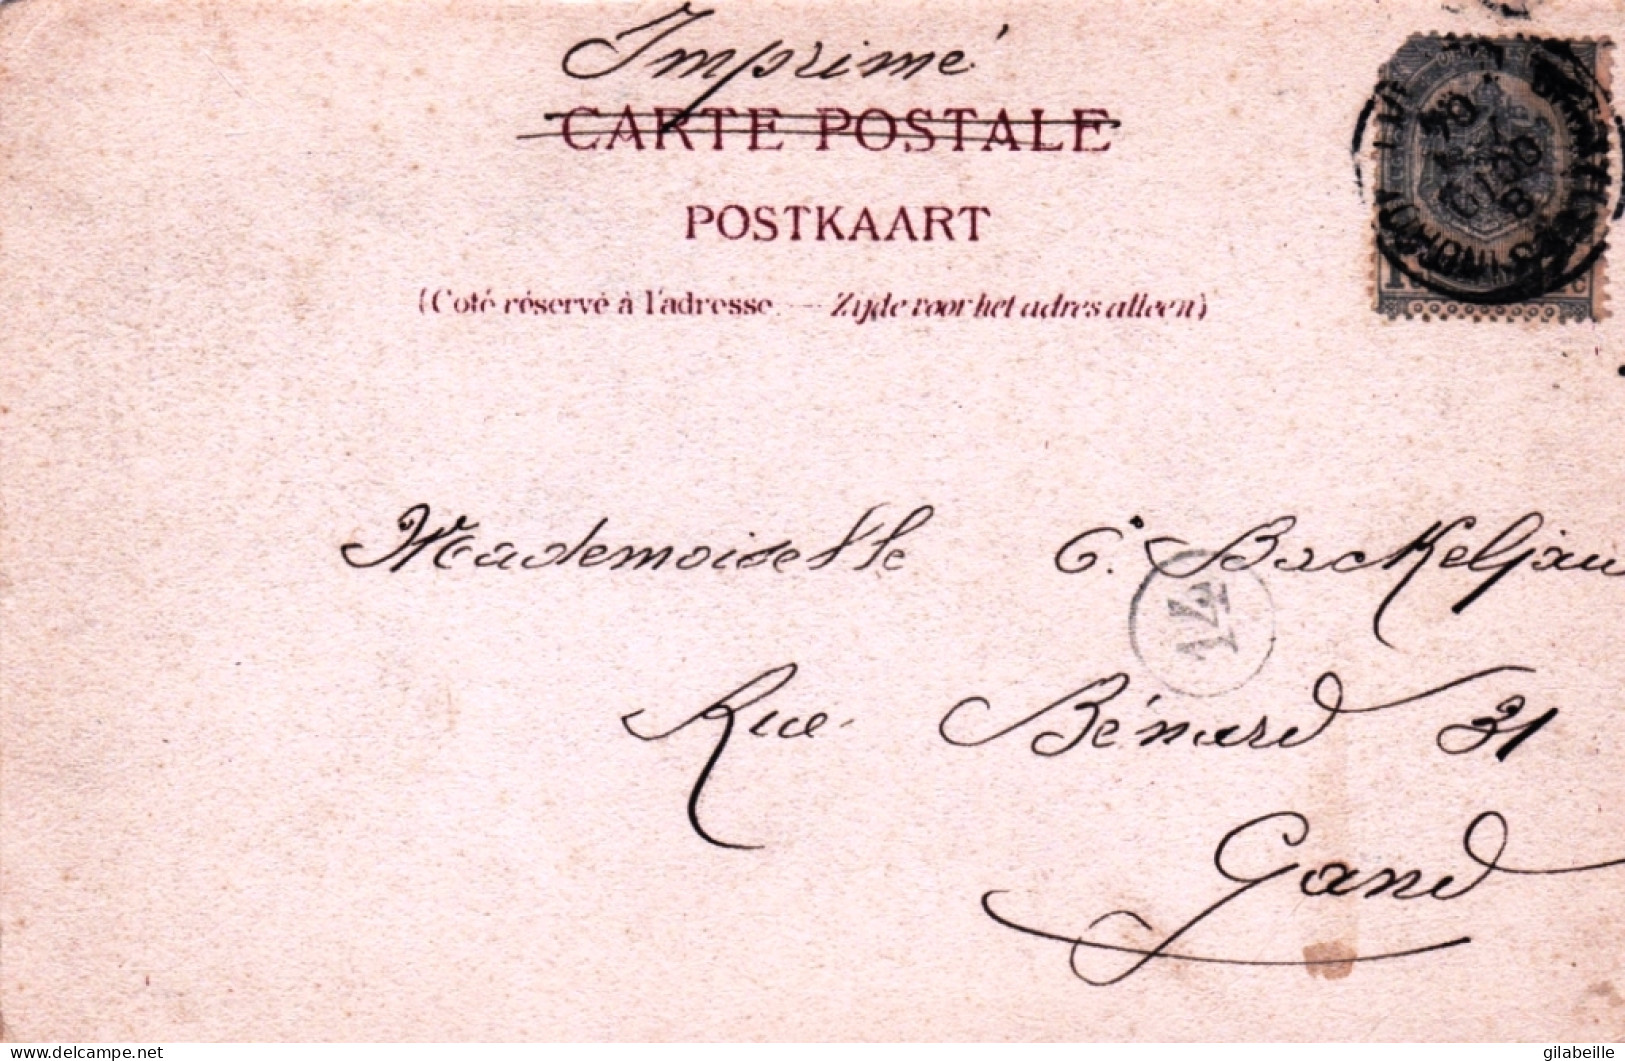 Imprimé
CARTE POSTALE
POSTKAART
(Coté réservé à l'adresse. — Zijde voor het adres alleen)
Mademoiselle C. Backeljau
14
Rue Bénard 31
Gand
delcampe.net
gilabeille